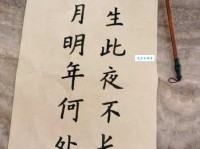 生此夜不长
月明年何处